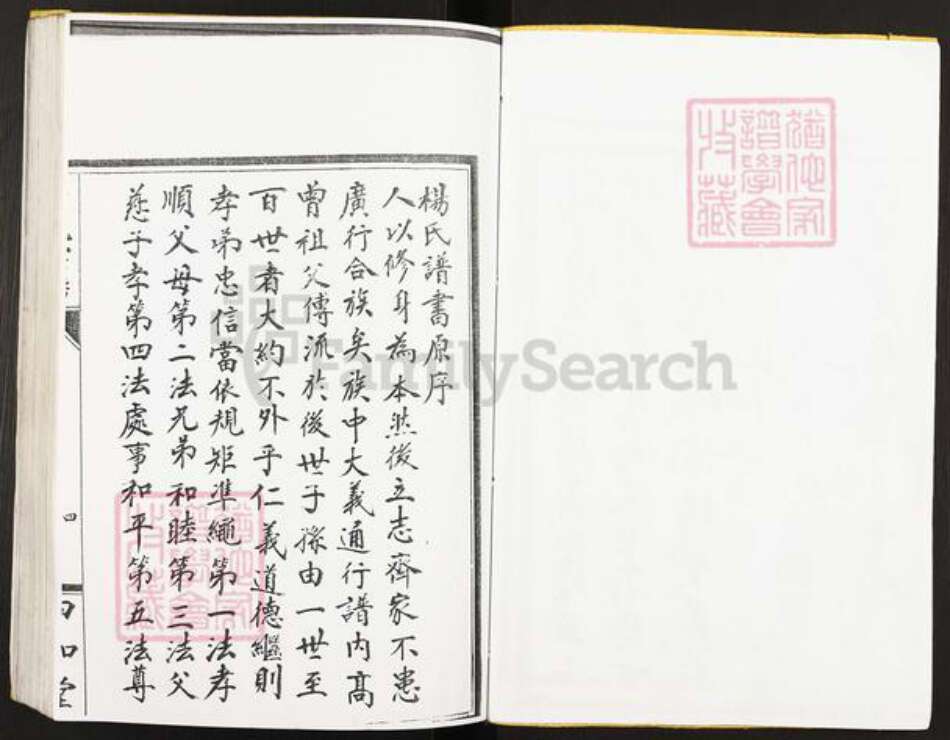 楊氏譜書原序
人以修身為本然後立志齊家不患
廣行合族矣族中大義通行譜內高
曾祖父傳流於後世子孫由一世至
百世者大約不外乎仁義道德繼則
孝弟忠信當依規矩準繩第一法孝
順父母第二法兄弟和睦第三法父
慈子孝第四法處事和平第五法尊
四
猶他家
譜學會
收藏
猶他家
譜學會
收藏
FamilySearch